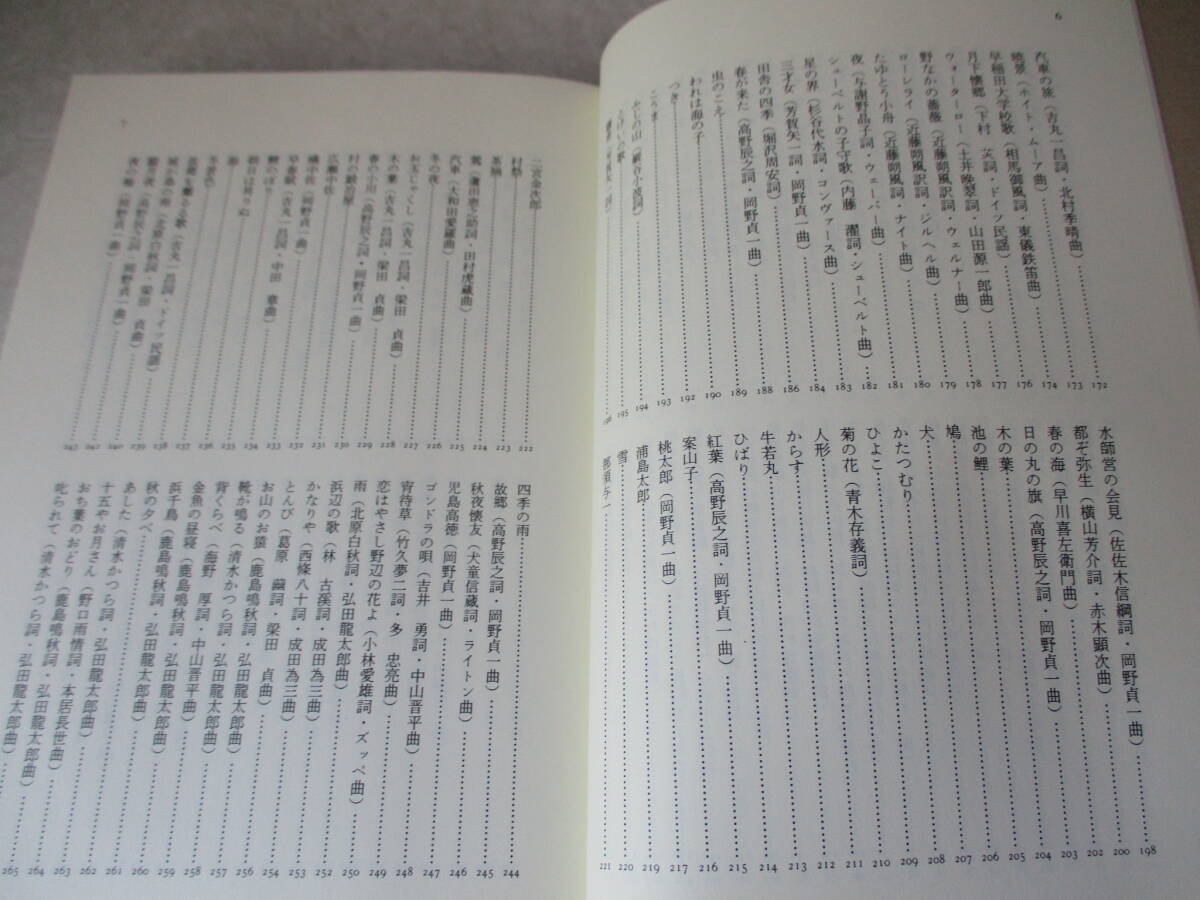 6
汽車の旅（吉丸一昌詞・北村季晴曲）……172
173
174
早稲田大学校歌（相馬御風詞・東儀鉄笛曲）……176
月下懐郷（下村　莢詞・ドイツ民謡）……177
ウォーターロー（土井晩翠詞・山田源一郎曲）……178
野なかの薔薇（近藤朔風訳詞・ウェルナー曲）……179
ローレライ（近藤朔風訳詞・ジルヘル曲）……180
たゆとう小舟（近藤朔風詞・ナイト曲）……181
夜（与謝野晶子詞・ウェーバー曲）……182
シューベルトの子守歌（内藤　濯詞・シューベルト曲）……183
星の界（杉谷代水詞・コンヴァース曲）……184
三才女（芳賀矢一詞・岡野貞一曲）……186
田舎の四季（堀沢周安詞）……188
春が来た（高野辰之詞・岡野貞一曲）……189
虫のこえ……190
われは海の子……192
つき……193
こうま……194
ふじの山（巌谷小波詞）……195
とけいの歌……196
水師営の会見（佐佐木信綱詞・岡野貞一曲）……198
都ぞ弥生（横山芳介詞・赤木顕次曲）……200
春の海（早川喜左衛門曲）……202
日の丸の旗（高野辰之詞・岡野貞一曲）……203
木の葉……204
池の鯉……205
鳩……206
犬……207
かたつむり……208
ひよこ……209
菊の花（青木存義詞）……210
人形……211
からす……212
牛若丸……213
ひばり……214
紅葉（高野辰之詞・岡野貞一曲）……215
案山子……216
桃太郎（岡野貞一曲）……217
浦島太郎……219
雪……220
那須与一……221
二宮金次郎……222
村祭……223
茶摘……224
鷲（蘆田恵之助詞・田村虎蔵曲）……225
汽車（大和田愛羅曲）……226
冬の夜……227
お玉じゃくし（吉丸一昌詞・梁田　貞曲）……228
木の葉（吉丸一昌詞・梁田　貞曲）……229
春の小川（高野辰之詞・岡野貞一曲）……230
村の鍛冶屋……231
広瀬中佐……232
橘中佐（岡野貞一曲）……233
早春賦（吉丸一昌詞・中田　章曲）……234
鯉のぼり……235
朝日は昇りぬ……236
海……237
冬景色……238
四季の雨……244
故郷（高野辰之詞・岡野貞一曲）……245
秋夜懐友（犬童信蔵詞・ライトン曲）……246
児島高徳（岡野貞一曲）……247
ゴンドラの唄（吉井　勇詞・中山晋平曲）……248
宵待草（竹久夢二詞・多　忠亮曲）……249
恋はやさし野辺の花よ（小林愛雄詞・ズッペ曲）……250
雨（北原白秋詞・弘田龍太郎曲）……251
浜辺の歌（林　古溪詞・成田為三曲）……252
かなりや（西條八十詞・成田為三曲）……253
とんび（葛原　𦱳詞・梁田　貞曲）……254
お山のお猿（鹿島鳴秋詞・弘田龍太郎曲）……255
靴が鳴る（清水かつら詞・弘田龍太郎曲）……256
背くらべ（海野　厚詞・中山晋平曲）……257
金魚の昼寝（鹿島鳴秋詞・弘田龍太郎曲）……258
浜千鳥（鹿島鳴秋詞・弘田龍太郎曲）……259
秋の夕べ……260
あした（清水かつら詞・弘田龍太郎曲）……261
十五夜お月さん（野口雨情詞・本居長世曲）……262
おち葉のおどり（鹿島鳴秋詞・弘田龍太郎曲）……263
叱られて（清水かつら詞・弘田龍太郎曲）……265